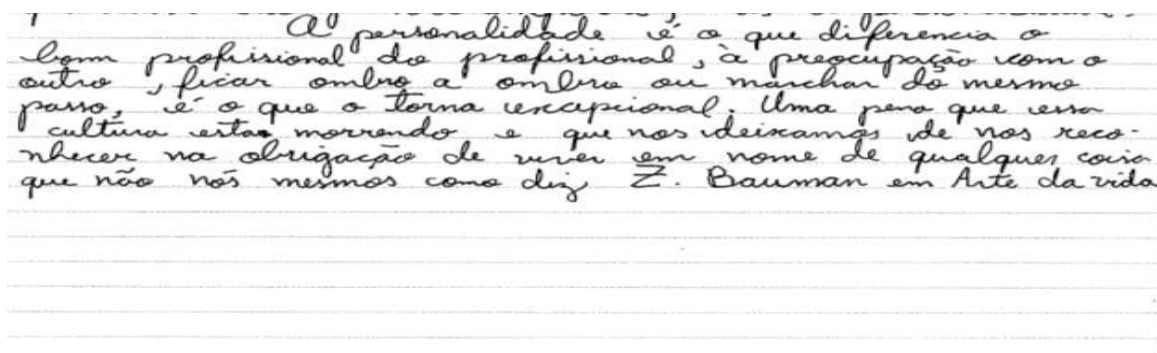 A personalidade é o que diferencia o
bom profissional do profissional, à preocupação com o
outro, ficar ombro a ombro ou marchar do mesmo
passo, é o que o torna excepcional. Uma pena que essa
cultura esta morrendo e que nos deixamos de nos reco-
nhecer na obrigação de viver em nome de qualquer coisa
que não nós mesmos como diz Z. Bauman em Arte da vida